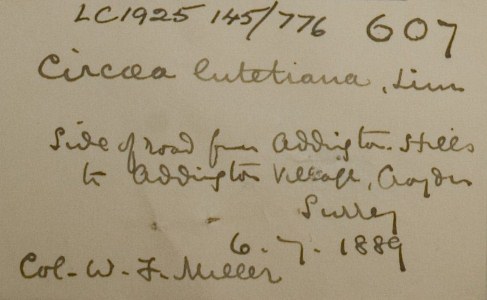 LC1925 145/776 607
Circæa lutetiana, Linn
Side of road from Addington Hills
to Addington Village, Croydon
Surrey
6. 7. 1889
Col. W. F. Miller